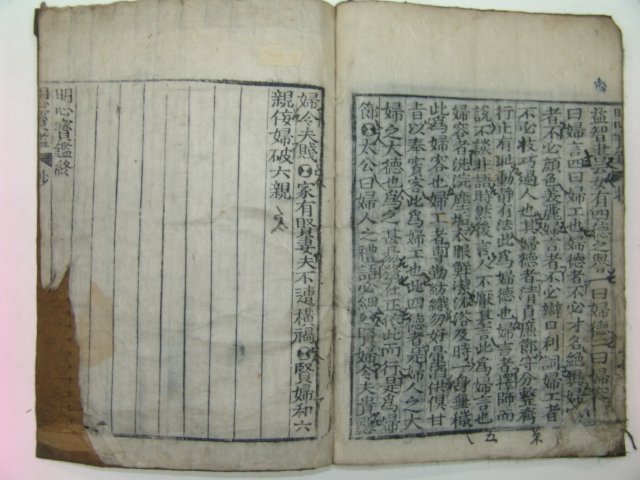 益智書云女有四德之譽一曰婦德二曰婦容
曰婦言四曰婦工也婦德者不必才名絶異婦
者不必顔色美麗婦言者不必辯口利詞婦工者
不必技巧過人也其婦德者清貞廉節守分整齊
行止有恥動靜有法此爲婦德也婦言者擇師而
說不談非禮時然後言人不厭其言此爲婦言也
婦容者洗浣塵垢衣服鮮潔沐浴及時一身無穢
此爲婦容也婦工者專勤紡織勿好暈酒供俱甘
旨以奉賓客此爲婦工也此四德者是婦人之大
婦之大德也爲之甚易務在正依此而行是爲婦
節太公曰婦人之禮語必細賢婦令夫貴惡
婦令夫賤家有賢妻夫不遭橫禍賢婦和六
親侫婦破六親
明心寶鑑終
明心寶鑑抄